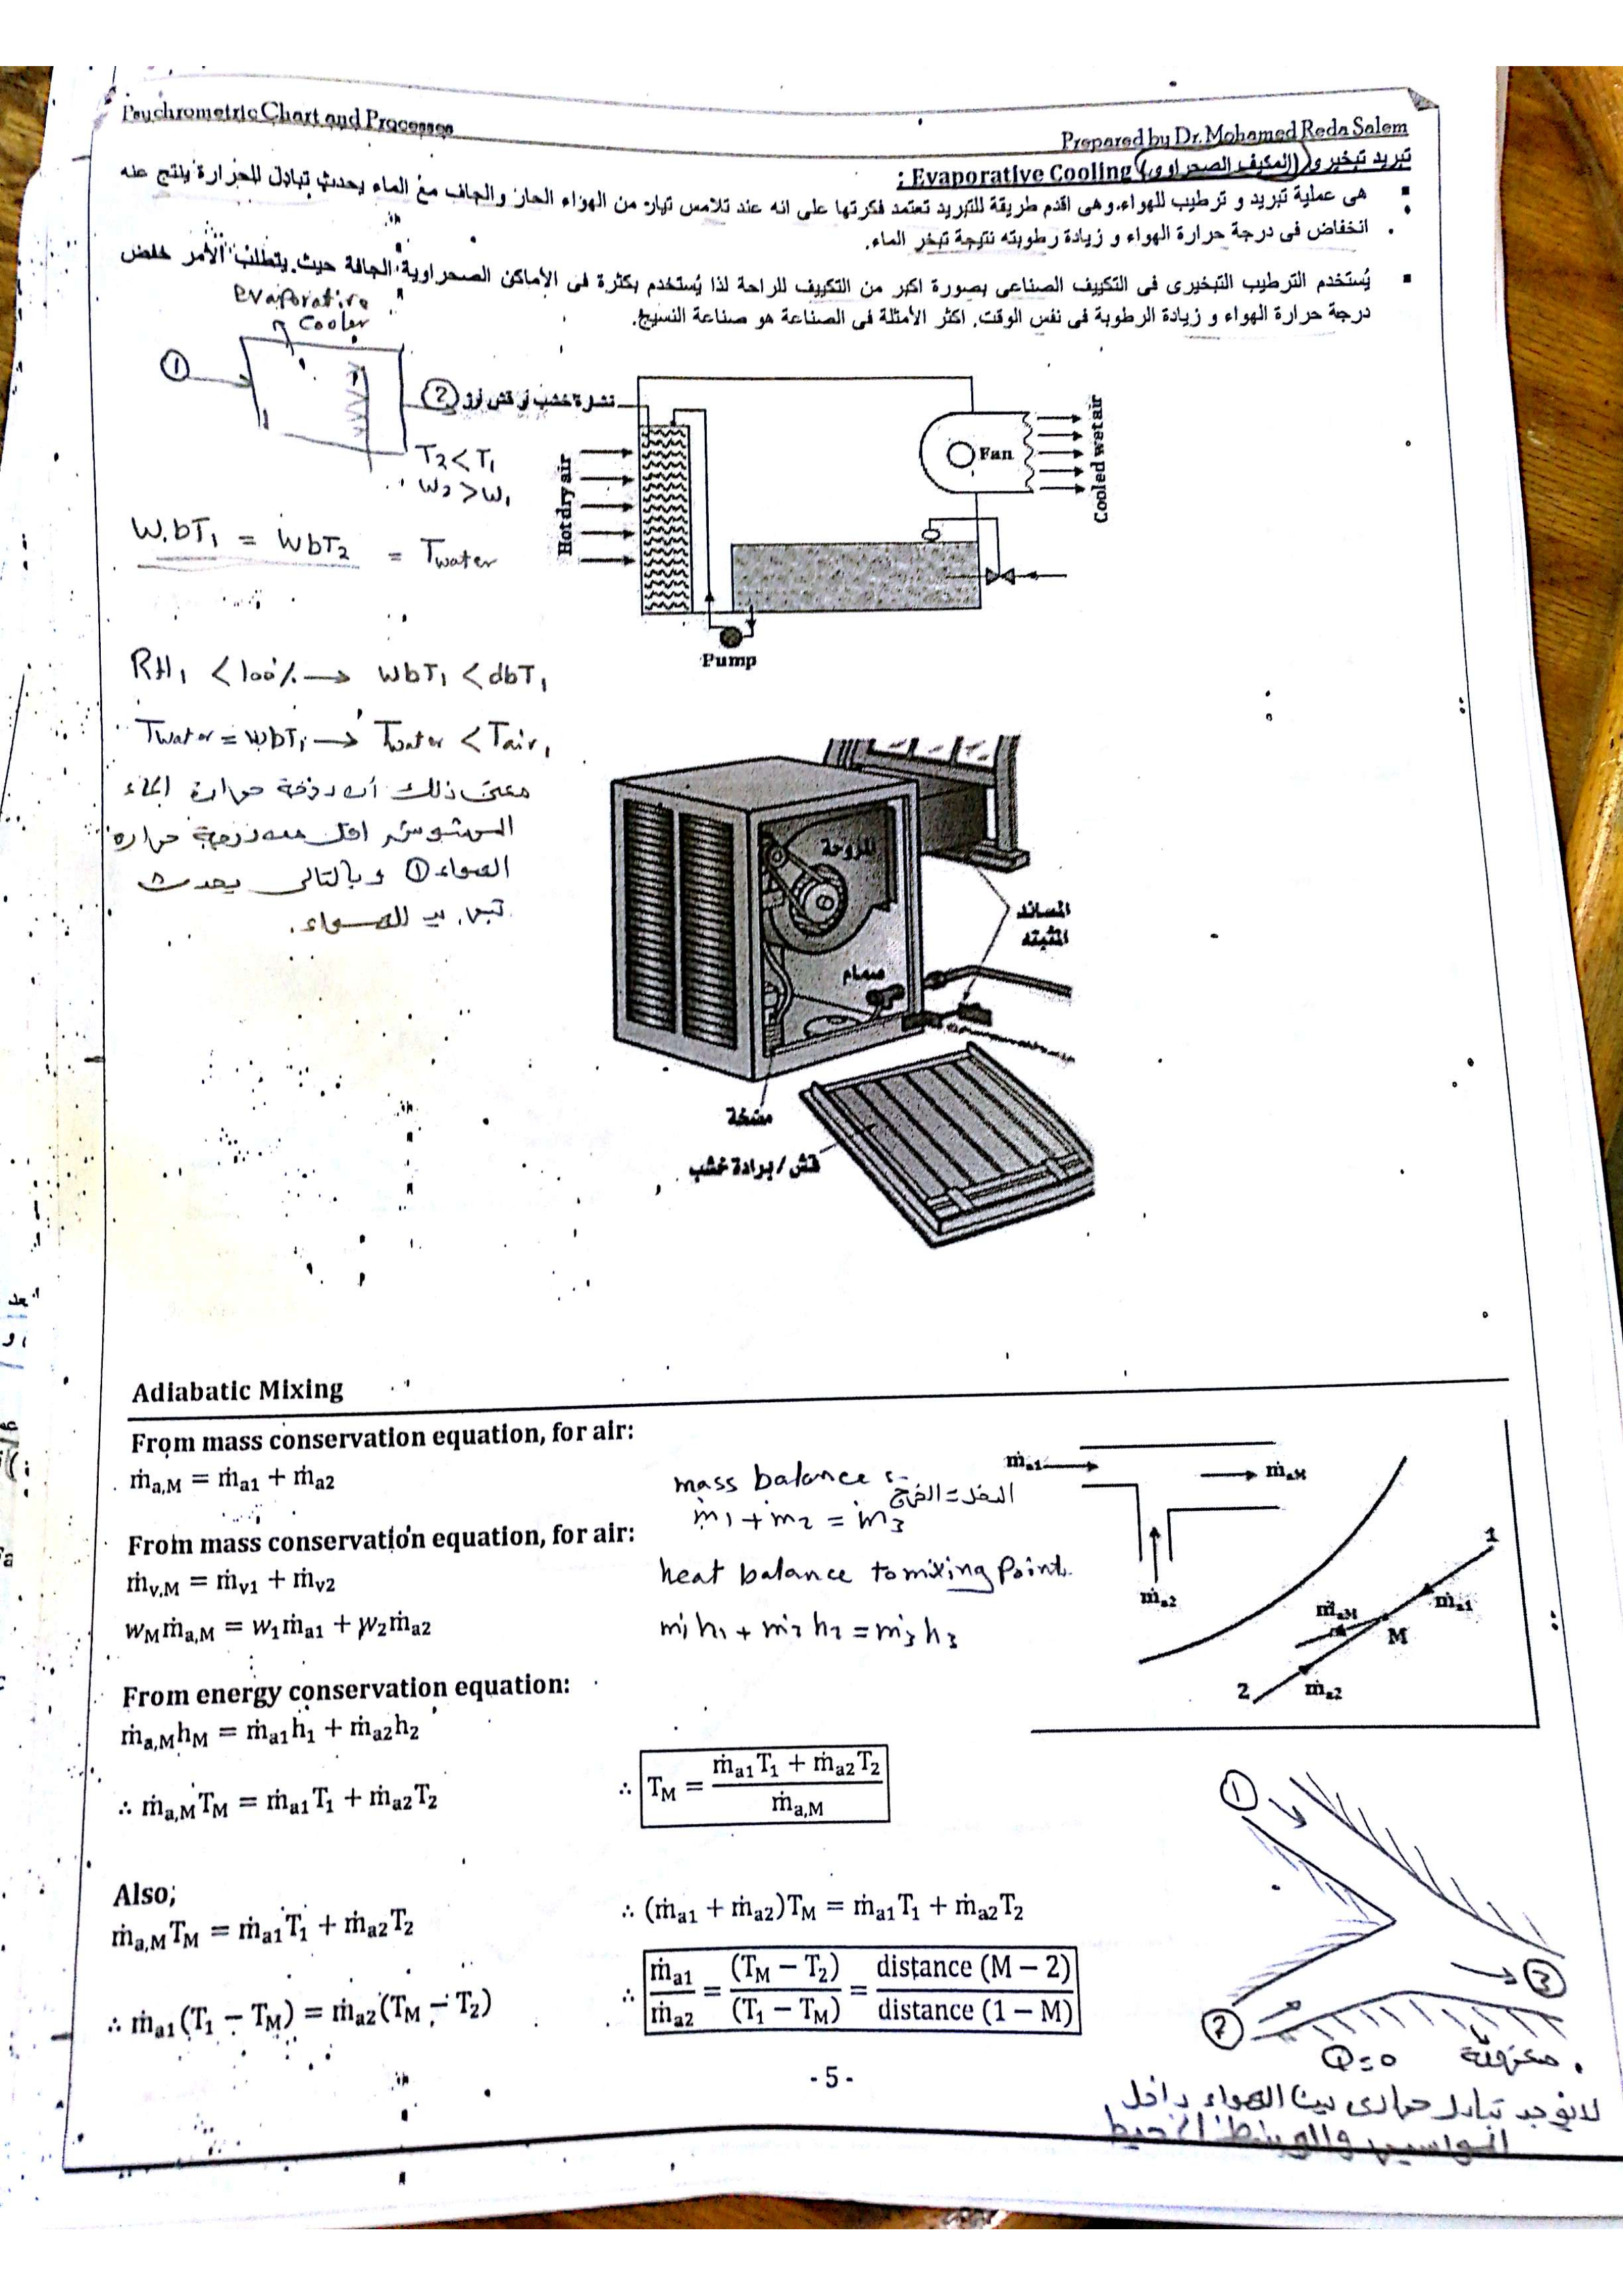 Psychrometric Chart and Processes
Prepared by Dr. Mohamed Reda Salem
تبريد تبخيرى (المكيف الصحراوى) Evaporative Cooling :
▪ هى عملية تبريد و ترطيب للهواء. وهى اقدم طريقة للتبريد تعتمد فكرتها على انه عند تلامس تيار من الهواء الحار والجاف مع الماء يحدث تبادل للحرارة ينتج عنه
انخفاض فى درجة حرارة الهواء و زيادة رطوبته نتيجة تبخر الماء.
▪ يُستخدم الترطيب التبخيرى فى التكييف الصناعى بصورة اكبر من التكييف للراحة لذا يُستخدم بكثرة فى الأماكن الصحراوية الجافة حيث يتطلب الأمر خفض
درجة حرارة الهواء و زيادة الرطوبة فى نفس الوقت. اكثر الأمثلة فى الصناعة هو صناعة النسيج.
evaporative
cooler
①
②
نشارة خشب أو قش أرز
T2 < T1
w2 > w1
Hot dry air
Fan
Cooled wet air
Pump
W.bT1 = WbT2 = Twater
RH1 < 100% → WbT1 < dbT1
Twater = WbT1 → Twater < Tair1
معنى ذلك أن درجة حرارة الماء
المرشوش اقل من درجة حرارة
الهواء ① وبالتالى يحدث
تبريد للهواء.
المروحة
المساند
المثبته
صمام
مضخة
قش / برادة خشب
Adiabatic Mixing
From mass conservation equation, for air:
ṁa,M = ṁa1 + ṁa2
From mass conservation equation, for air:
ṁv,M = ṁv1 + ṁv2
wMṁa,M = w1ṁa1 + w2ṁa2
mass balance :-
الدخل = الخرج
ṁ1 + ṁ2 = ṁ3
heat balance to mixing Point.
ṁ1h1 + ṁ2h2 = ṁ3h3
ṁa1
ṁaM
ṁa2
1
ṁa1
ṁaM
M
2
ṁa2
From energy conservation equation:
ṁa,MhM = ṁa1h1 + ṁa2h2
∴ ṁa,MTM = ṁa1T1 + ṁa2T2
∴ TM = (ṁa1T1 + ṁa2T2) / ṁa,M
Also;
ṁa,MTM = ṁa1T1 + ṁa2T2
∴ (ṁa1 + ṁa2)TM = ṁa1T1 + ṁa2T2
∴ ṁa1(T1 − TM) = ṁa2(TM − T2)
∴ ṁa1 / ṁa2 = (TM − T2) / (T1 − TM) = distance (M − 2) / distance (1 − M)
①
②
③
Q=0 معزولة
لا يوجد تبادل حرارى بين الهواء داخل
المواسير والوسط المحيط
- 5 -